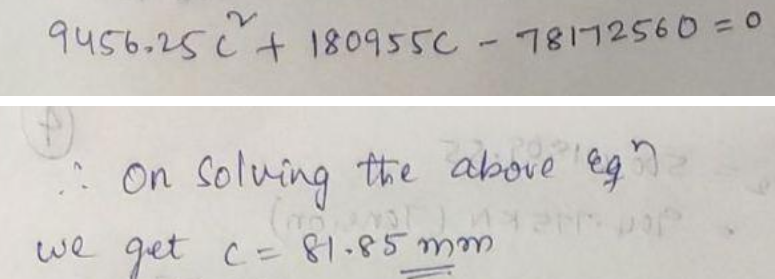 9456.25c² + 180955c - 78172560 = 0
∴ On solving the above eqⁿ
we get c = 81.85 mm